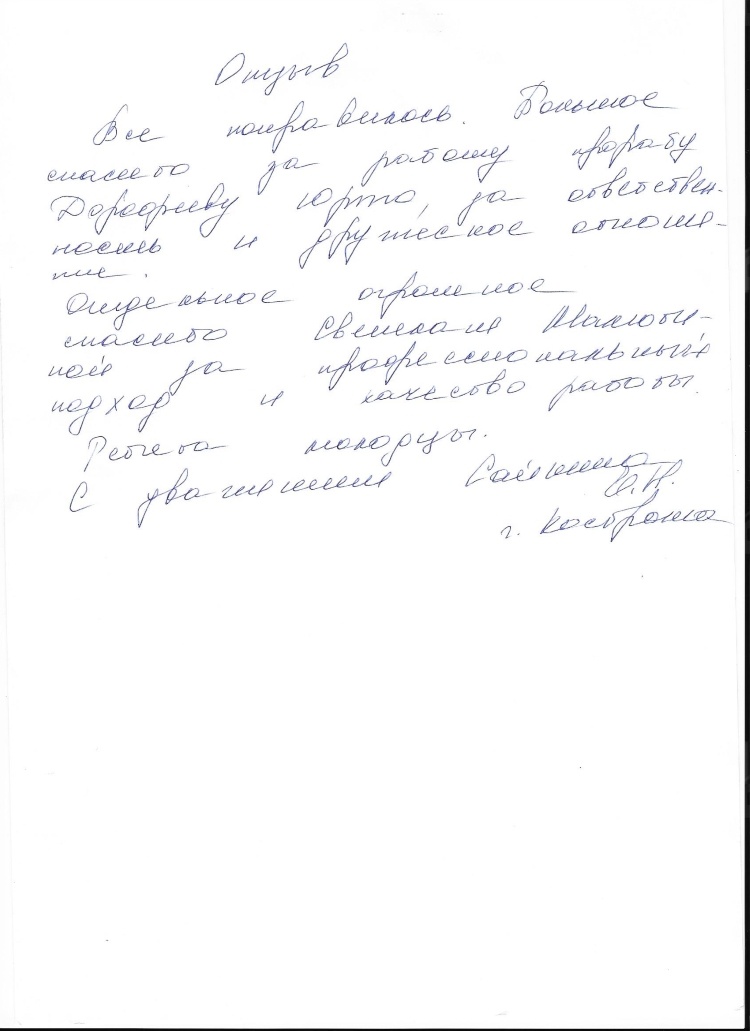 Отзыв
Все понравилось. Большое
спасибо за работу прорабу
Дорофееву за ответствен-
ность и дружеское отноше-
ние.
Отдельное огромное
спасибо Светлане
ной за профессиональный
подход и качество работы.
Ребята молодцы.
С уважением
г. Кострома